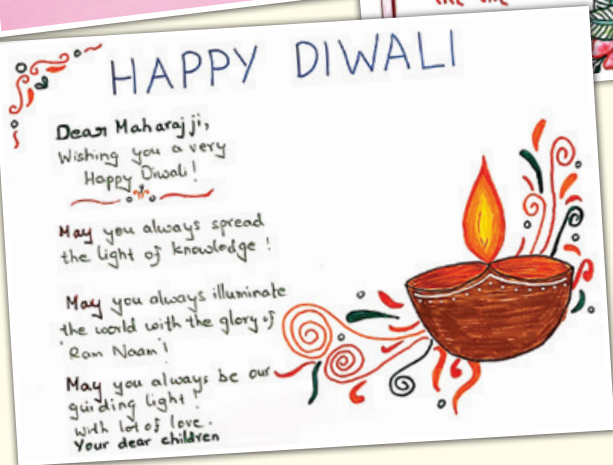 HAPPY DIWALI
Dear Maharaj ji,
Wishing you a very
Happy Diwali!
May you always spread
the light of knowledge!
May you always illuminate
the world with the glory of
'Ram Naam'!
May you always be our
guiding light!
with lot of love.
Your dear children